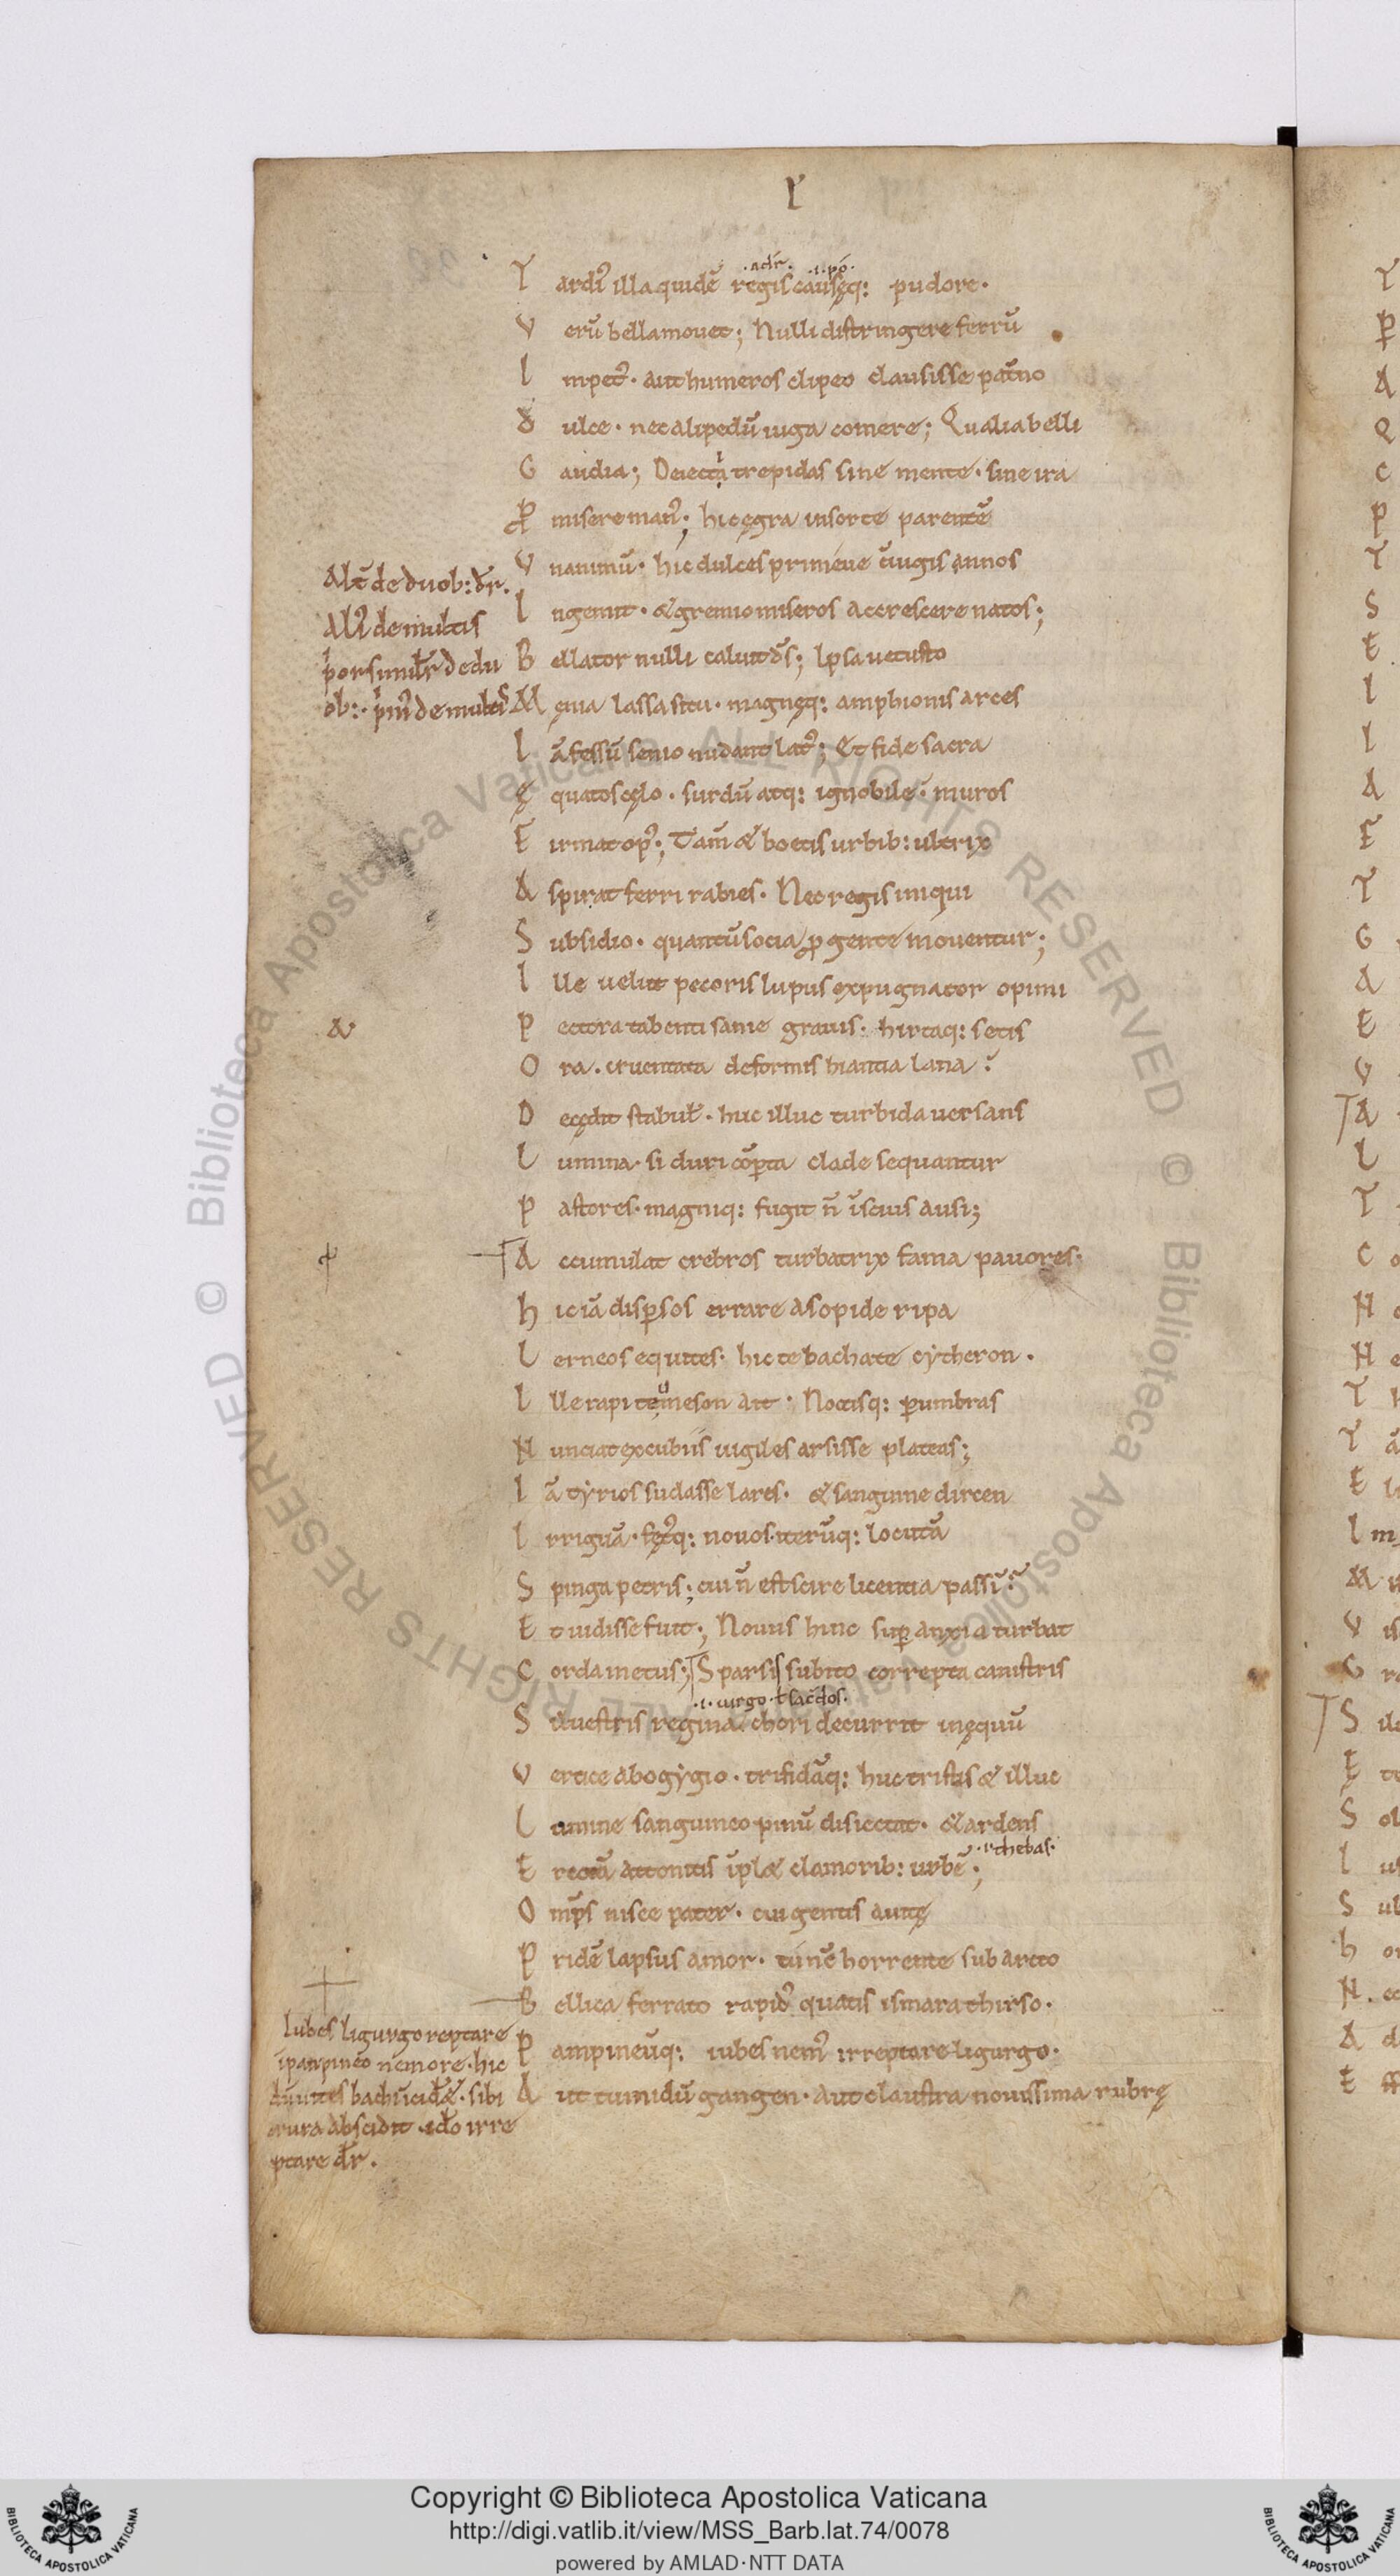 T ardi᷒ illa quidē regis causęq: pudore·
·adr̄· ·i·pō·
V erū bella mouet; Nulli distringere ferrū
I mpet᷒· aut humeros clipeo clausisse pat̄no
D ulce· nec alipedū iuga comere; Qualia belli
G audia; Deiecta trepidas sine mente· sine ira
P misere man᷒; hic ęgra in sorte parentē
V nanimū· hic dulces primeue c̄iugis annos
I ngemit· & gremio miseros accrescere natos;
Alt̄ de duob: dr̄·
Ali᷒ de multis
B ellator nulli caluit ds̄; Ipsa uetusto
M ęnia lassa situ· magnęq: amphionis arces
I ā fessū senio nudant lat᷒; Et fide sacra
Ę quatos cęlo· surdū atq: ignobile· muros
F irmat op᷒; Tam̄ & boetis urbib: ultrix
A spirat ferri rabies· Nec regis iniqui
S ubsidio· quantū socia ꝓ gente mouentur;
I lle uelut pecoris lupus expugnator opimi
P ectora tabenti sanie grauis· hirtaq: setis
O ra· cruentata deformis hiantia lana·
D ecędit stabul᷒· huc illuc turbida uersans
L umina· si duri cōꝑta clade sequantur
P astores· magniq: fugit n̄ īscius ausi;
A ccumulat crebros turbatrix fama pauores·
H ic iā disꝑsos errare asopide ripa
L erneos equites· hic te bachate cytheron·
I lle rapi teumeson ait· Noctisq: ꝑ umbras
N unciat excubiis uigiles arsisse plateas;
I ā tyrios sudasse lares· & sanguine dircen
I rriguā· fęt᷒q: nouos· iterūq: locutā
S pinga petris; cui n̄ est scire licentia passī·
E t uidisse fuit; Nouus hinc suꝑ anxia turbat
C orda metus; Sparsis subito correpta canistris
·i· uirgo· ł sac̄dos·
S iluestris regina chori decurrit in ęquū
V ertice ab ogygio· trifidāq: huc tristis & illuc
L umine sanguineo pinū disiectat· & ardens
·i· thebas·
E rectā attonitis īpl& clamorib: urbē;
O mp̄s nisee pater· cui gentis auitę
P ridē lapsus amor· tu nc̄ horrente sub arcto
B ellica ferrato rapid᷒ quatis ismara thirso·
P ampineūq: iubes nem᷒ irreptare ligurgo·
A ut tumidū gangen· aut claustra nouissima rubrę
Iubes ligurgo reptare
ī panpineo nemore· hic
crura abscidit· ido irre
ptare dr̄·
© Biblioteca Apostolica Vaticana ALL RIGHTS RESERVED © Biblioteca Apostolica Vaticana ALL RIGHTS RESERVED
Copyright © Biblioteca Apostolica Vaticana
http://digi.vatlib.it/view/MSS_Barb.lat.74/0078
powered by AMLAD·NTT DATA
BIBLIOTECA APOSTOLICA VATICANA
BIBLIOTECA APOSTOLICA VATICANA